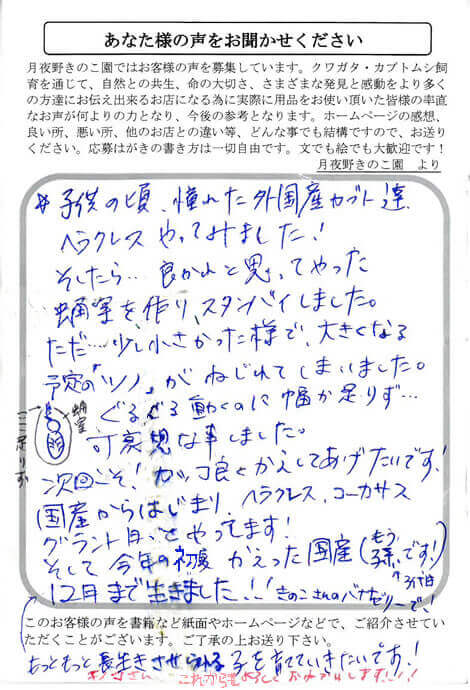 あなた様の声をお聞かせください
月夜野きのこ園ではお客様の声を募集しています。クワガタ・カブトムシ飼
育を通じて、自然との共生、命の大切さ、さまざまな発見と感動をより多く
の方達にお伝え出来るお店になる為に実際に用品をお使い頂いた皆様の率直
なお声が何よりの力となり、今後の参考となります。ホームページの感想、
良い所、悪い所、他のお店との違い等、どんな事でも結構ですので、お送り
ください。応募はがきの書き方は一切自由です。文でも絵でも大歓迎です！
月夜野きのこ園　より
子供の頃、憧れた外国産カブト達
ヘラクレスやってみました！
そしたら… 良かれと思ってやった
蛹室を作り、スタンバイしました。
ただ…少し小さかった様で、大きくなる
予定の「ツノ」がねじれてしまいました。
ぐるぐる動くのに幅が足りず…
可哀想な事しました。
蛹室
ここ足りず
次回こそ！カッコ良くかえしてあげたいです！
国産からはじまり、ヘラクレス、コーカサス
グラント
やってます！
そして今年の初夏 かえった国産(もう
です！)
12月まで生きました！！ きのこさんのバナナゼリーで！
このお客様の声を書籍など紙面やホームページなどで、ご紹介させていた
だくことがございます。ご了承の上お送り下さい。
もっともっと長生きさせられる子を育てていきたいです！
これからもよろしくおねがいします!!!